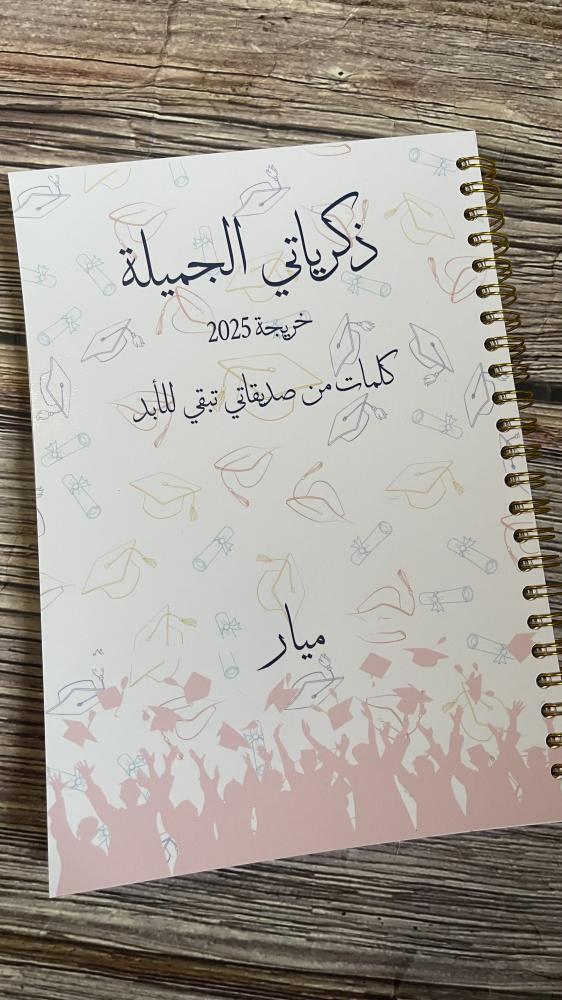 ذكرياتي الجميلة
خريجة 2025
كلمات من صديقاتي تبقي للأبد
ميار